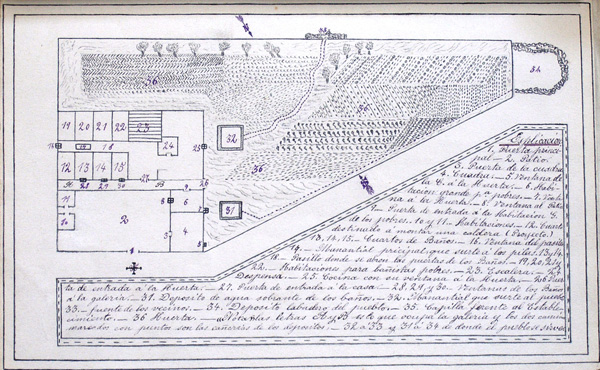 Esplicacion
1. Puerta princi-
pal — 2. Patio.
3. Puerta de la cuadra
4. Cuadra. 5. Ventana de
la C. á la Huerta. 6. Habi-
tacion grande pª pobres. 7. Venta-
na á la Huerta. 8. Ventana al Patio
9. Puerta de entrada á la Habitacion G.
de los pobres. 10 y 11. Habitaciones. 12. Cuarto
destinado á montar una caldera (Proyecto)
13, 14, 15. Cuartos de Baños. 16. Ventana del pasillo
17. Manantial principal que surte á las pilas 13, 14.
18. Pasillo donde se abren las puertas de los Baños. 19, 20, 21 y
22. Habitaciones para bañistas pobres. 23. Escalera. 24.
Despensa. 25. Cocina con su ventana á la Huerta. 26. Puer-
ta de entrada á la Huerta. 27. Puerta de entrada á la casa — 28, 29, y 30. Ventanas de los Baños
á la galeria. — 31. Deposito de agua sobrante de los baños. 32. Manantial que surte al pueblo
33. fuente de los vecinos. 34. Deposito labadero del pueblo. 35. Capilla frente al Estable-
cimiento. — 36 Huerta. — Nota: las letras A y B es lo que ocupa la galeria y los dos cami-
marcados con puntos son las cañerias de los depositos. — 32 á 33 y 31 á 34 de donde el pueblo se sirve
36
19 20 21 22 23
24
25
32
34
18
12 13 14 15
A 28 29 30 B
27
26
36
11
10
2
9
8
6
7
31
3
4
5
1